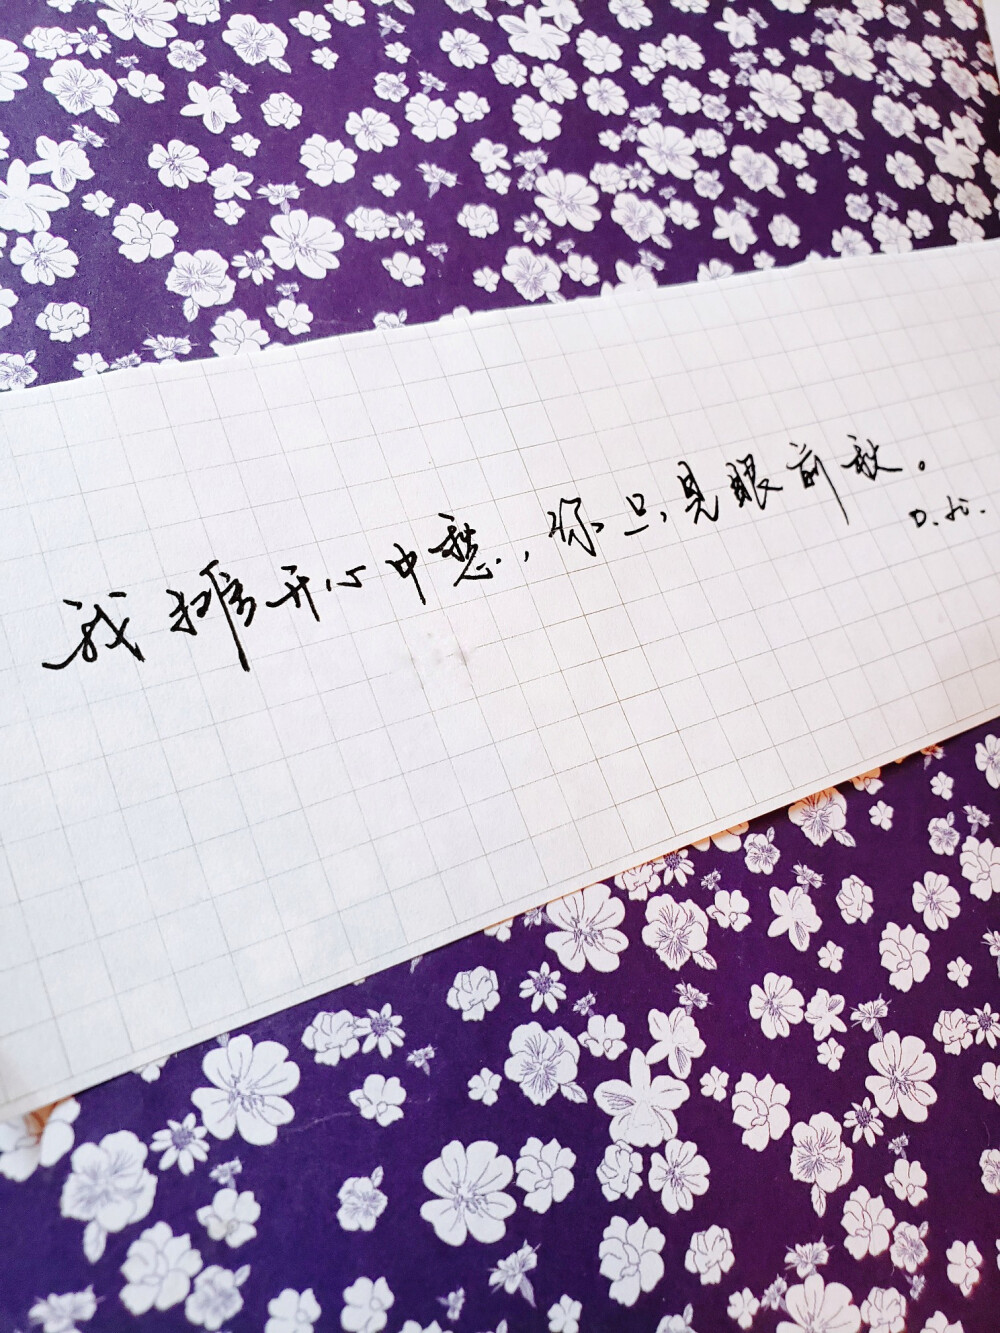 我掰开心中愁，你只见眼前秋。